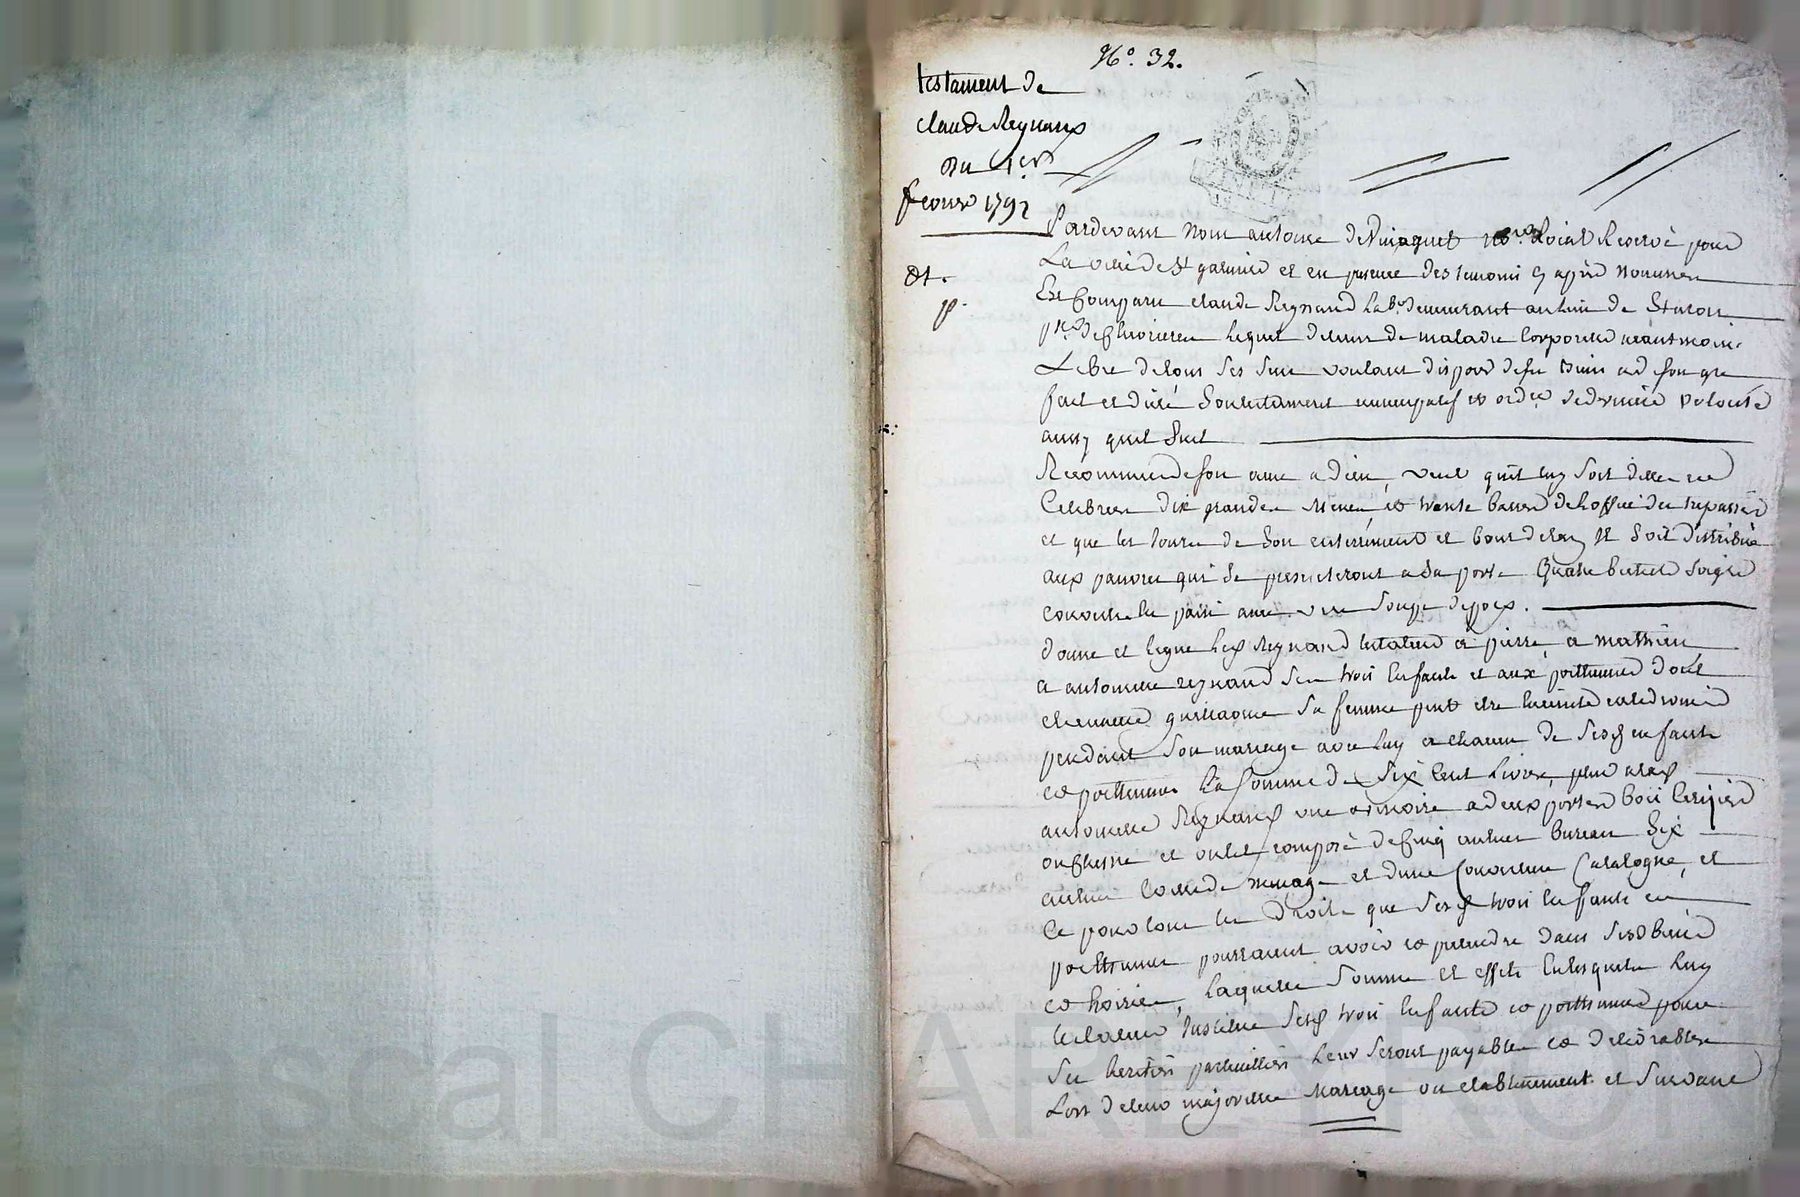 N.o 32.
testament de
claude Reynaud
du 1er
fevrier 1792
dt.
p.
Pardevant Nous antoine Roial Reservé pour
La ville de St galmier et en presence des temoins cy après nommés
Est Comparu claude Reynaud Lab.r demeurant au lieu de
p.sse de Chevrieres Lequel detenu de maladie Corporelle neantmoins
Libre de tous ses sens voulant disposer de ses biens a de son gre
fait et dicté Son testament nuncupatif et ordce de derniere volonté
ainsy quil Suit
Recommende son ame a dieu, veut quil luy soit dittes et
Celebrées dix grandes Messes et trente basses de Loffice des trepassés
et que les jours de Son enterrement et bout de lan Il Soit distribué
aux pauvres qui Se presenteront a Sa porte Quatre bichets Soigle
convertis en pain avec une Soupe de pois.
donne et legue Led Reynaud testateur a pierre, a mathieu
a antoinette reynaud Ses trois Enfants et aux posthumes dont
guillaume Sa femme peut etre Enceinte
pendant Son mariage avec luy a chacun de Sesd enfants
et posthumes La Somme de Six Cent Livres, plus a lad
antoinette Reynaud une armoire a deux portes bois Cerisier
ou Chesne et un lit composé de Cinq aulnes bureau Six
aulnes toille de menage et d'une Couverture Catalogne, et
Ce pour tous les droits que Sesd trois Enfants et
posthumes pourraient avoir et pretendre dans Ses biens
et hoirie, Laquelle Somme et effets Ensequels Luy
testateur Institue Sesd trois Enfants et posthumes pour
Ses heritiers particulliers Leur Seront payables et delivrables
Lors de leur majorité Mariage ou etablissement et Survenant
Pascal CHAREYRON